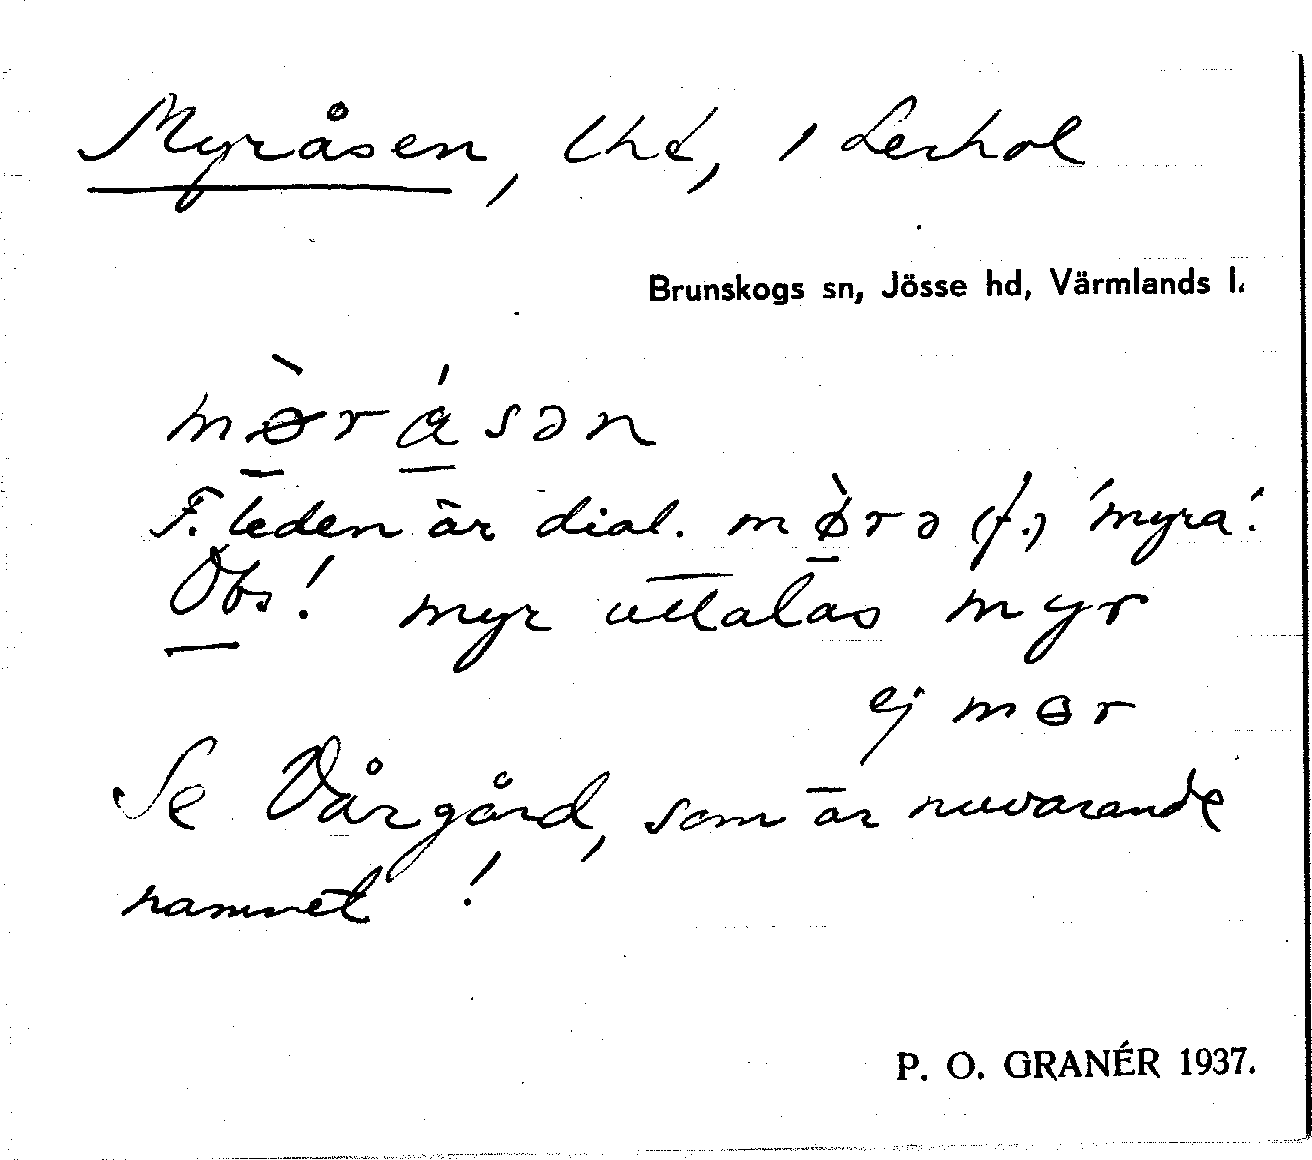 Myråsen, lhd, i Lerhol
Brunskogs sn, Jösse hd, Värmlands l.
mɵ̀rásən
F. leden är dial. mø̀rə (f.) 'myra'.
Obs! myr uttalas myr
ej mɵr
Se Vårgård, som är nuvarande
namnet !
P. O. GRANÉR 1937.